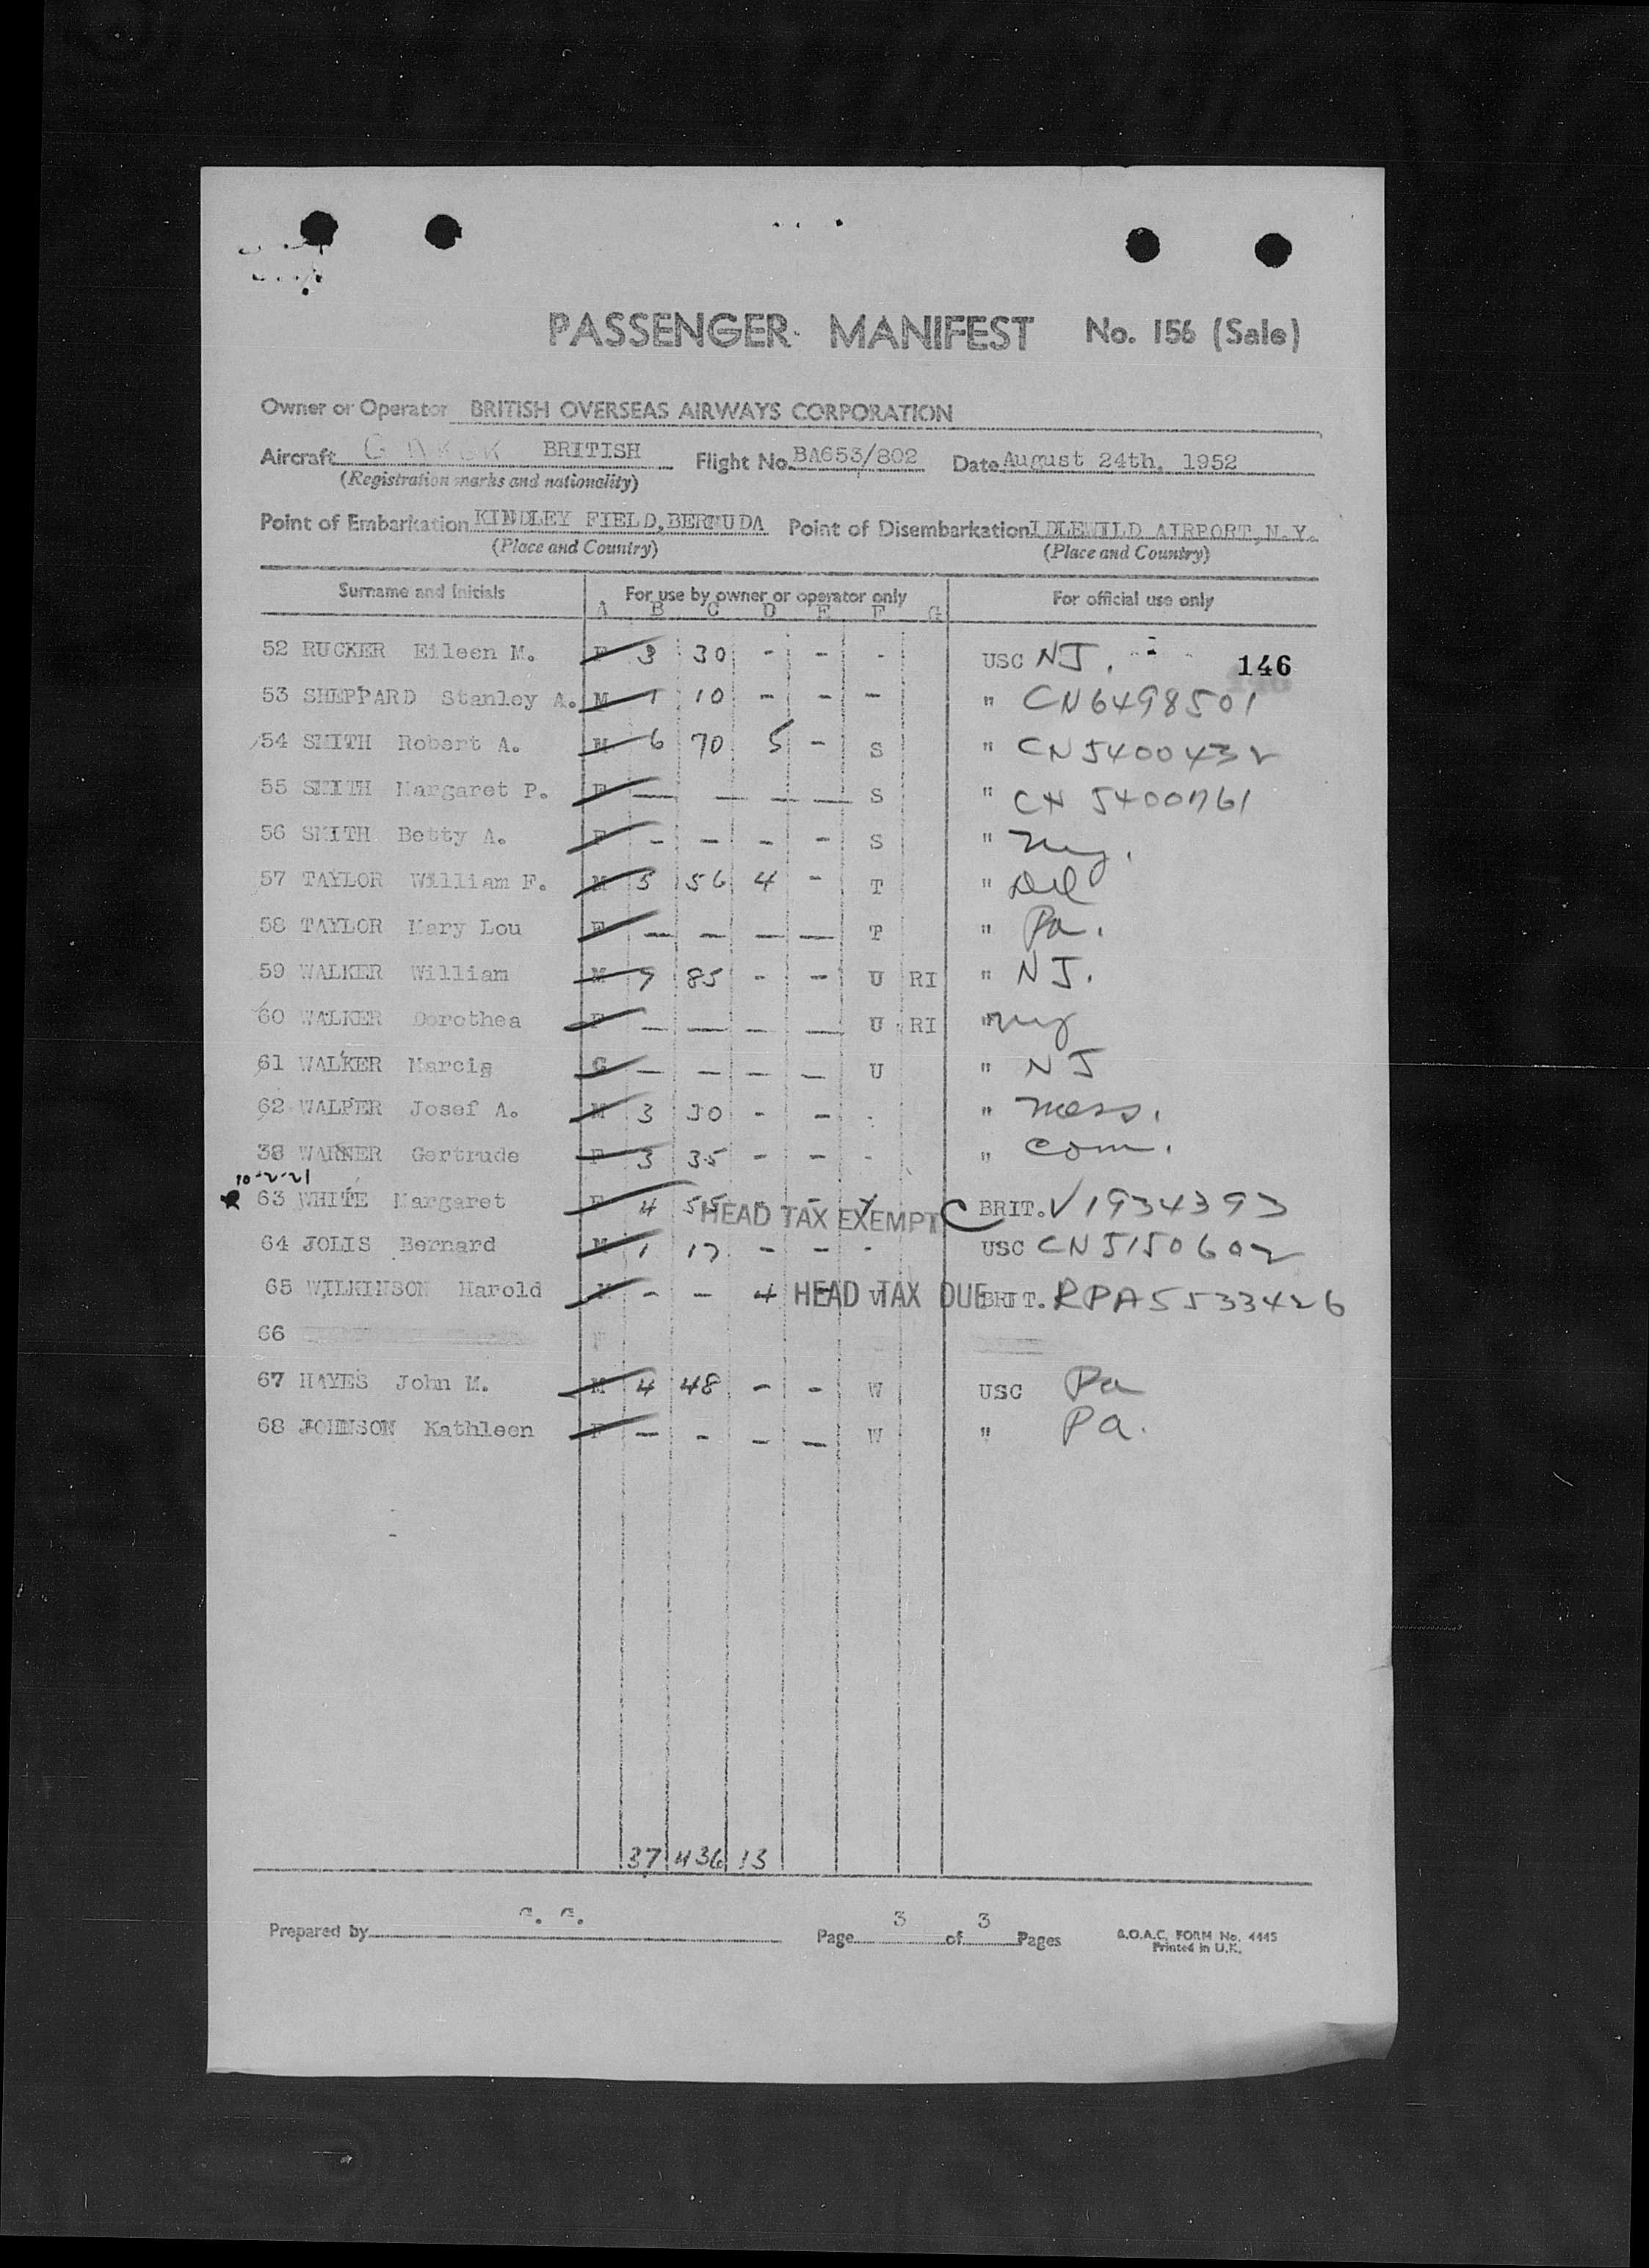 PASSENGER MANIFEST No. 156 (Sale)
Owner or Operator BRITISH OVERSEAS AIRWAYS CORPORATION
Aircraft BRITISH Flight No. BA653/802 Date August 24th, 1952
(Registration marks and nationality)
Point of Embarkation KINDLEY FIELD, BERMUDA Point of Disembarkation IDLEWILD AIRPORT, N.Y.
(Place and Country) (Place and Country)
Surname and Initials For use by owner or operator only For official use only
A B C D E F G
52 RUCKER Eileen M. F 3 30 - - - USC NJ. 146
53 SHEPPARD Stanley A. M 1 10 - - - " CN6498501
54 SMITH Robert A. M 6 70 5 - S " CN5400432
55 SMITH Margaret P. F — — — — S " CN 5400761
56 SMITH Betty A. F - - - - S " NY.
57 TAYLOR William F. M 5 56 4 - T " Del
58 TAYLOR Mary Lou F — — — — T " Pa.
59 WALKER William M 7 85 - - U RI " NJ.
60 WALKER Dorothea F — — — — U RI " NY
61 WALKER Marcia G — — — — U " NJ
62 WALPER Josef A. M 3 30 - - - " Mass.
38 WARNER Gertrude F 3 35 - - - " Conn.
10-2-21
63 WHITE Margaret F 4 55 - - HEAD TAX EXEMPT C BRIT. V1934393
64 JOLIS Bernard M 1 17 - - - USC CN5150602
65 WILKINSON Harold M - - 4 - V HEAD TAX DUE BRIT. RPA5533426
66 F
67 HAYES John M. M 4 48 - - W USC Pa
68 JOHNSON Kathleen F - - - — W " Pa.
37 436 13
Prepared by G. G. Page 3 of 3 Pages B.O.A.C. FORM No. 4445
Printed in U.K.